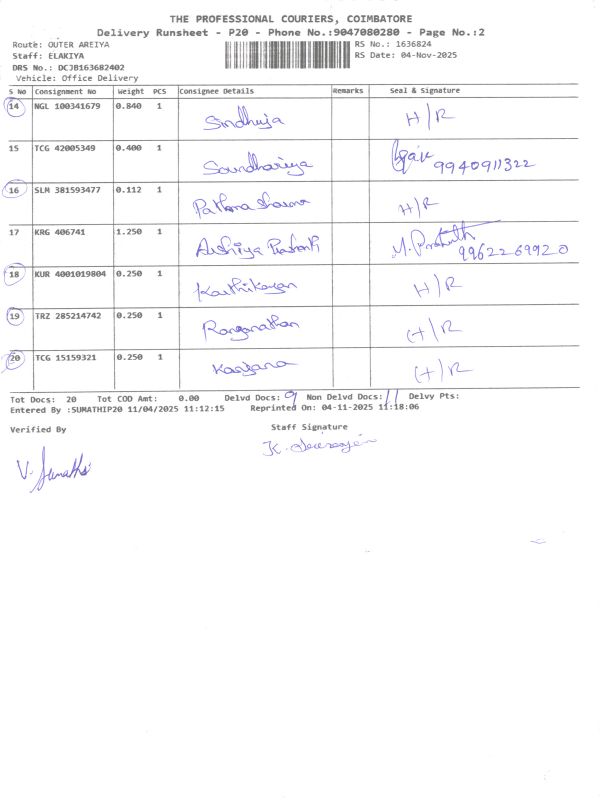 THE PROFESSIONAL COURIERS, COIMBATORE
Delivery Runsheet - P20 - Phone No.:9047080280 - Page No.:2
Route: OUTER AREIYA RS No.: 1636824
Staff: ELAKIYA RS Date: 04-Nov-2025
DRS No.: DCJB163682402
Vehicle: Office Delivery
S No Consignment No Weight PCS Consignee Details Remarks Seal & Signature
14 NGL 100341679 0.840 1 Sindhuja H/R
15 TCG 42005349 0.400 1 Soundhariya 9940911322
16 SLM 381593477 0.112 1 H/R
17 KRG 406741 1.250 1 9962269920
18 KUR 4001019804 0.250 1 Karthikeyan H/R
19 TRZ 285214742 0.250 1 Ranganathan H/R
20 TCG 15159321 0.250 1 Kanjana H/R
Tot Docs: 20 Tot COD Amt: 0.00 Delvd Docs: 9 Non Delvd Docs: 11 Delvy Pts:
Entered By :SUMATHIP20 11/04/2025 11:12:15 Reprinted On: 04-11-2025 11:18:06
Verified By Staff Signature
V. Sumathi